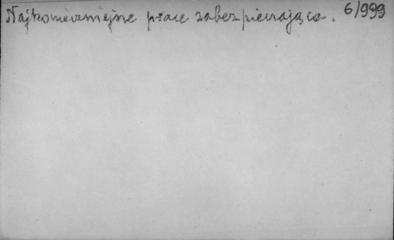 Najkonieczniejsze prace zabezpieczające. 6/999